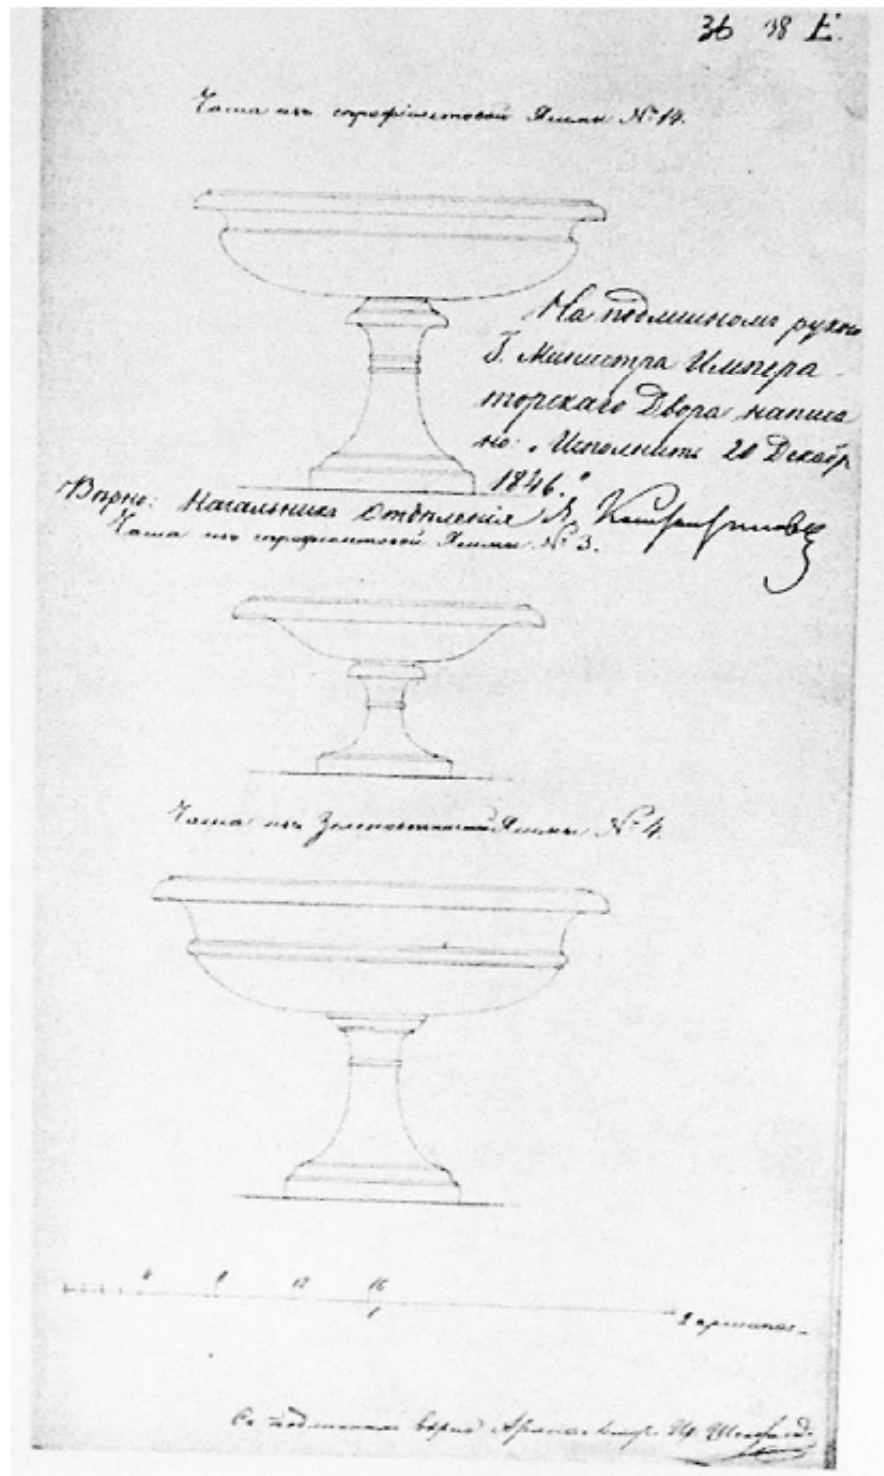 36 38 Е.
Чаша изъ серофіолетовой Яшмы № 14.
На подлинномъ рукою
Г. Министра Импера
торскаго Двора написа
но: „Исполнить 20 Декабр
1846.“
Вѣрно: Начальникъ Отдѣленія
Чаша изъ Яшмы № 3.
Чаша изъ Яшмы № 4.
4 8 12 16
1
2 аршина
Съ подлиннымъ вѣрно